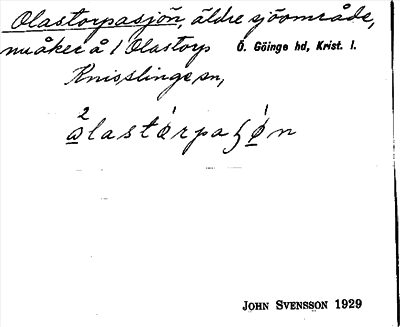 Olastorpasjön, äldre sjöområde,
nu åker å 1 Olastorp Ö. Göinge hd, Krist. l.
Knisslinge sn,
JOHN SVENSSON 1929